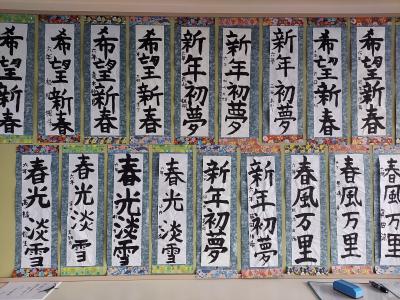 希望新春
希望新春
希望新春
希望新春
新年初夢
新年初夢
新年初夢
希望新春
希望新春
春光淡雪
春光淡雪
春光淡雪
春光淡雪
新年初夢
新年初夢
春風万里
春風万里
春風万里